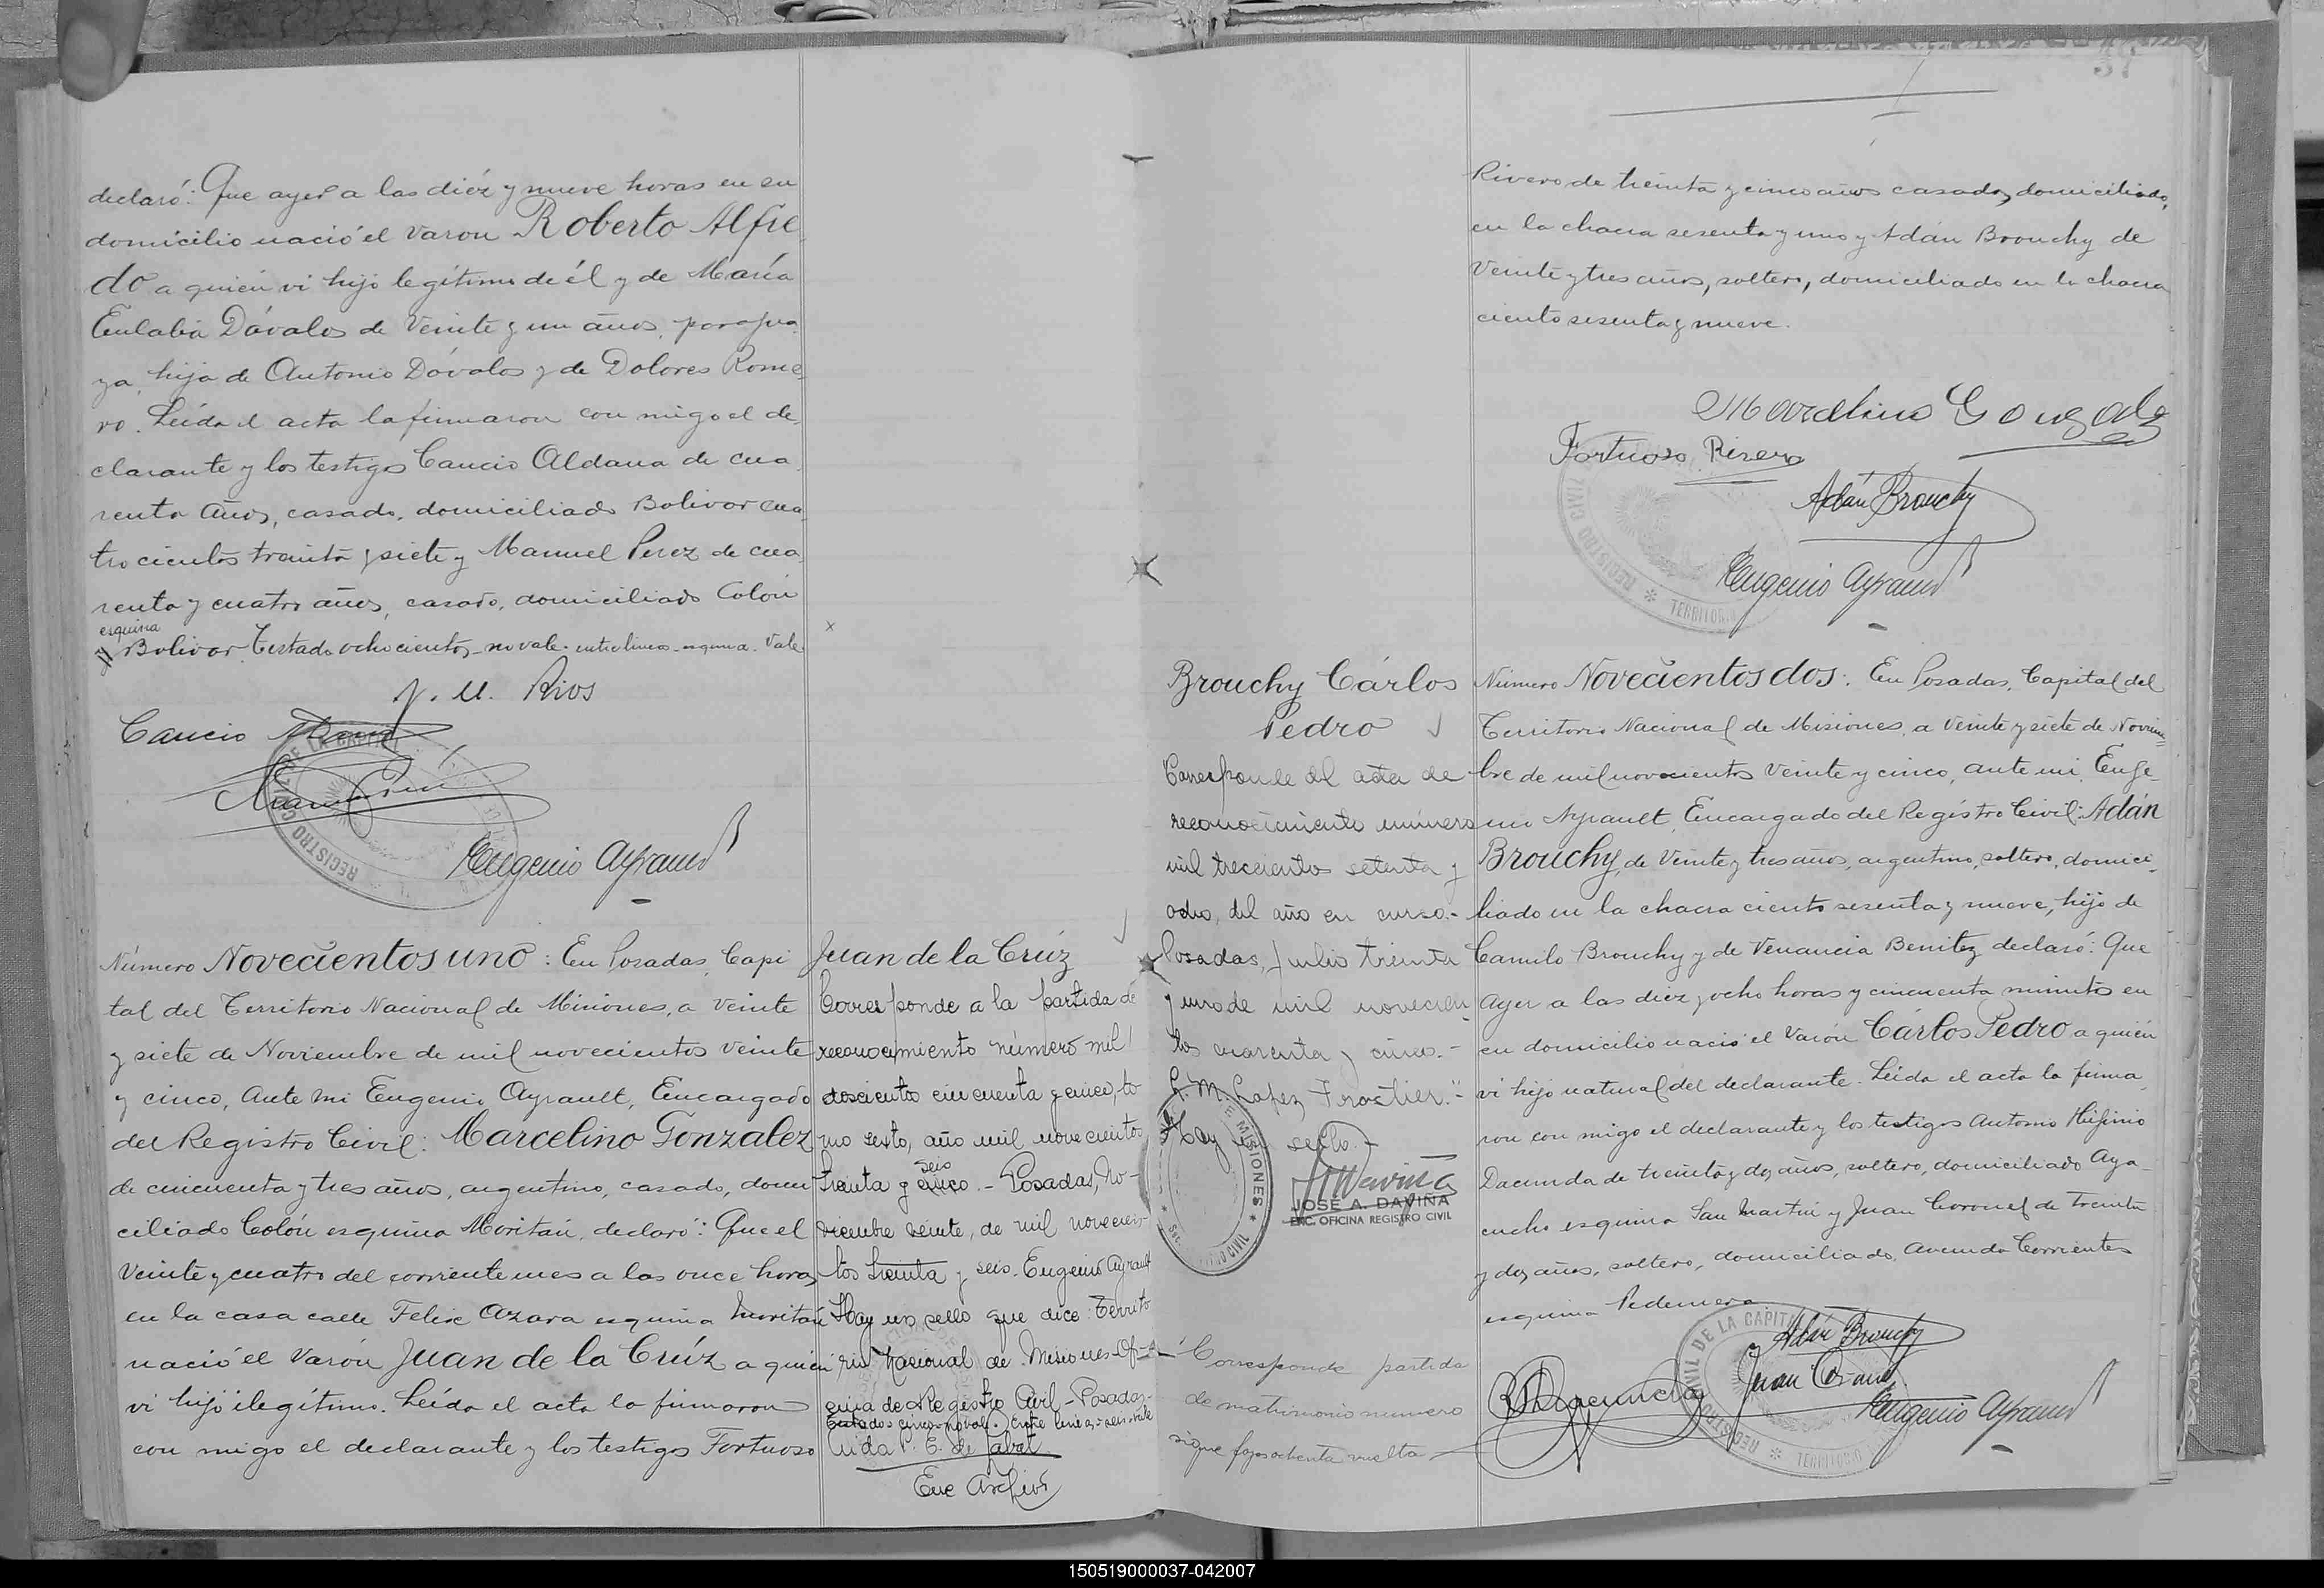 declaró: Que ayer a las diéz y nueve horas en su
domicilio nació el varon Roberto Alfre
do a quién vi hijo legítimo de él y de María
Eulalia Dávalos de veinte y un años, paragua
ya, hija de Antonio Dávalos y de Dolores Rome
ro. Leída el acta la firmaron con migo el de
clarante y los testigos Cancio Aldana de cua
renta años, casado, domiciliado Bolivar cua
tro cientos treinta y siete y Manuel Perez de cua
renta y cuatro años, casado, domiciliado Colón
esquina
Bolivar. Testado ochocientos - no vale - entre lineas - esquina - Vale
N. U. Rios
Cancio
Eugenio Ayrault
REGISTRO CIVIL DE LA CAPITAL
Número Novecientos uno: En Posadas, Capi
tal del Territorio Nacional de Misiones, a veinte
y siete de Noviembre de mil novecientos veinte
y cinco, Ante mi Eugenio Ayrault, Encargado
del Registro Civil: Marcelino Gonzalez
de cincuenta y tres años, argentino, casado, domi
ciliado Colón esquina Moritán, declaró: Que el
veinte y cuatro del corriente mes a las once horas
en la casa calle Felix Azara esquina Moritán
nació el varón Juan de la Crúz a quién
vi hijo ilegítimo. Leída el acta la firmaron
con migo el declarante y los testigos Fortuoso
Juan de la Crúz
Corresponde a la partida de
reconocimiento número mil
doscientos cincuenta y cinco, to
mo sexto, año mil novecientos
seis
treinta y cinco. - Posadas, No-
viembre veinte, de mil novecien
tos treinta y seis. Eugenio Ayrault
Hay un sello que dice: Territo
rio Nacional de Misiones - Ofi-
cina de Registro Civil - Posadas -
Testado: cinco - no vale. Entre lineas: seis - vale
Enc Archivo
37
Rivero, de treinta y cinco años casado, domiciliado,
en la chacra sesenta y uno y Adán Brouchy de
veinte y tres años, soltero, domiciliado en la chacra
ciento sesenta y nueve.
Marcelino Gonzalez
Fortuoso Rivero
Adán Brouchy
Eugenio Ayrault
REGISTRO CIVIL
TERRITORIO
Brouchy Cárlos
Pedro
Corresponde del acta de
reconocimiento número
mil trescientos setenta y
ocho, del año en curso.-
Posadas, Julio treinta
y uno de mil novecien
tos cuarenta y cinco.-
Hay un sello.-
MISIONES
JOSE A. DAVIÑA
ENC. OFICINA REGISTRO CIVIL
Corresponde partida
de matrimonio numero
sigue fojas ochenta vuelta
Número Novecientos dos: En Posadas, Capital del
Territorio Nacional de Misiones, a veinte y siete de Noviem-
bre de mil novecientos veinte y cinco, ante mi, Euge
nio Ayrault, Encargado del Registro Civil: Adán
Brouchy, de veinte y tres años, argentino, soltero, domici-
liado en la chacra ciento sesenta y nueve, hijo de
Camilo Brouchy y de Venancia Benitez declaró: Que
ayer a las diez y ocho horas y cincuenta minutos en
su domicilio nació el varón Cárlos Pedro a quién
vi hijo natural del declarante. Leída el acta la firma
ron con migo el declarante y los testigos Antonio Higinio
Dacunda de treinta y dos años, soltero, domiciliado Aya-
cucho esquina San Martin y Juan Coronel de treinta
y dos años, soltero, domiciliado Avenida Corrientes
esquina Pedernera.
Adán Brouchy
Eugenio Ayrault
REGISTRO CIVIL DE LA CAPITAL
TERRITORIO
150519000037-042007